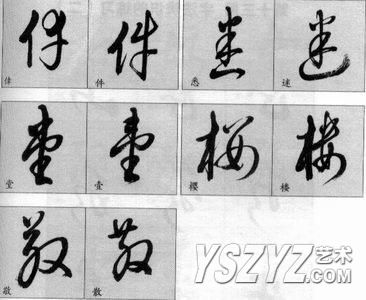 件 悉 迷
堂 壹 樱 楼
敬 散
YSZYZ艺术
.com